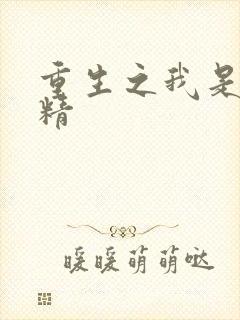 重生之我是
精
暖暖萌萌哒